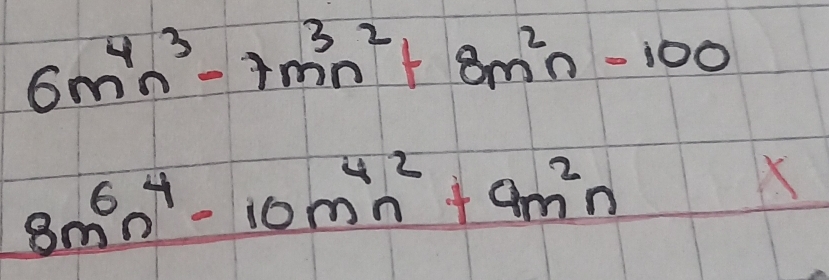 6m⁴n³ - 7m³n² + 8m²n - 100
8m⁶n⁴ - 10m⁴n² + 9m²n x